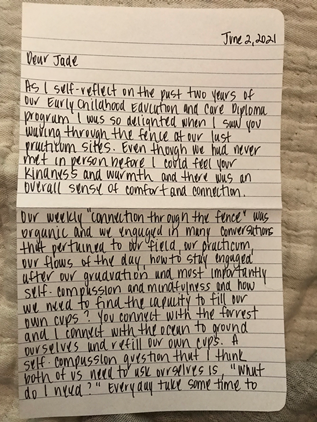 June 2, 2021
Dear Jade
As I self-reflect on the past two years of
our Early Childhood Education and Care Diploma
program I was so delighted when I saw you
walking through the fence at our last
practicum sites. Even though we had never
met in person before I could feel your
kindness and warmth and there was an
overall sense of comfort and connection.
Our weekly "connection through the fence" was
organic and we engaged in many conversations
that pertained to our field, our practicum,
our flows of the day, how to stay engaged
after our graduation and most importantly
self-compassion and mindfulness and how
we need to find the capacity to fill our
own cups? You connect with the forrest
and I connect with the ocean to ground
ourselves and refill our own cups. A
self-compassion question that I think
both of us need to ask ourselves is, "What
do I need?" Everyday take some time to